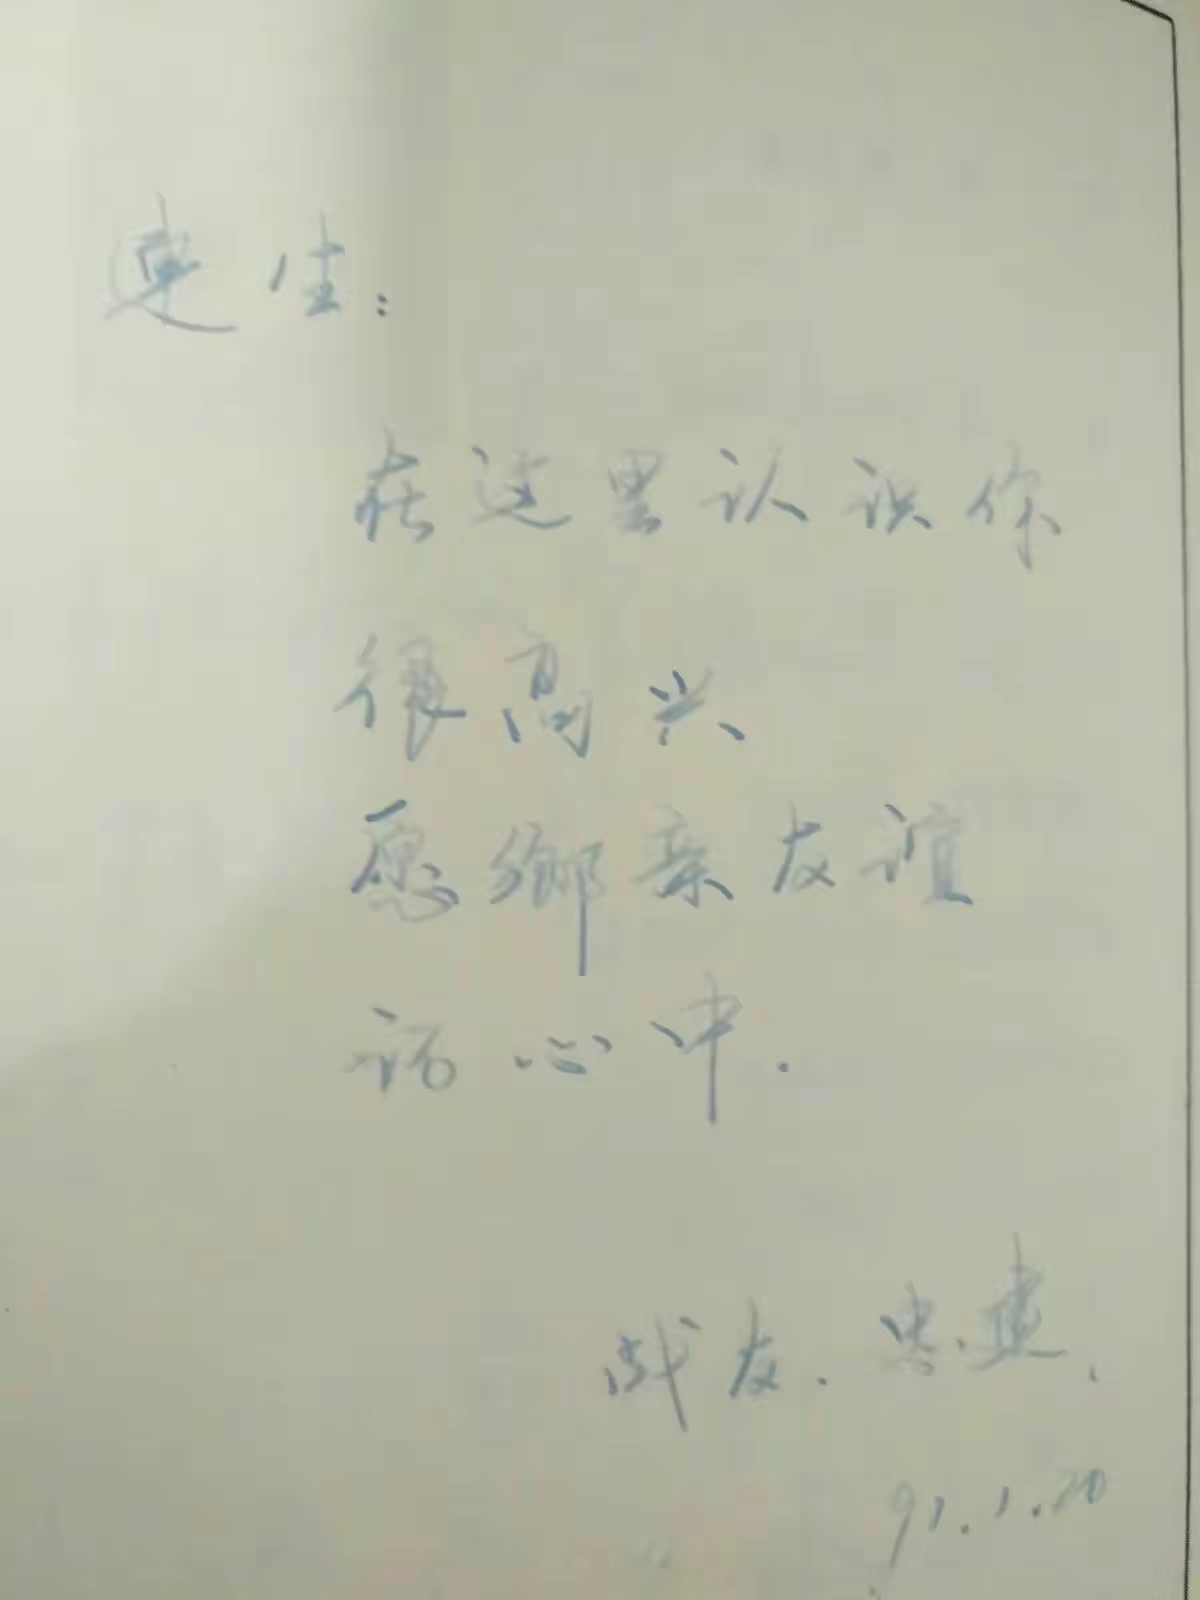 连生：
在这里认识你
很高兴
愿鄉亲友谊
记心中.
战友.忠建.
91.1.20